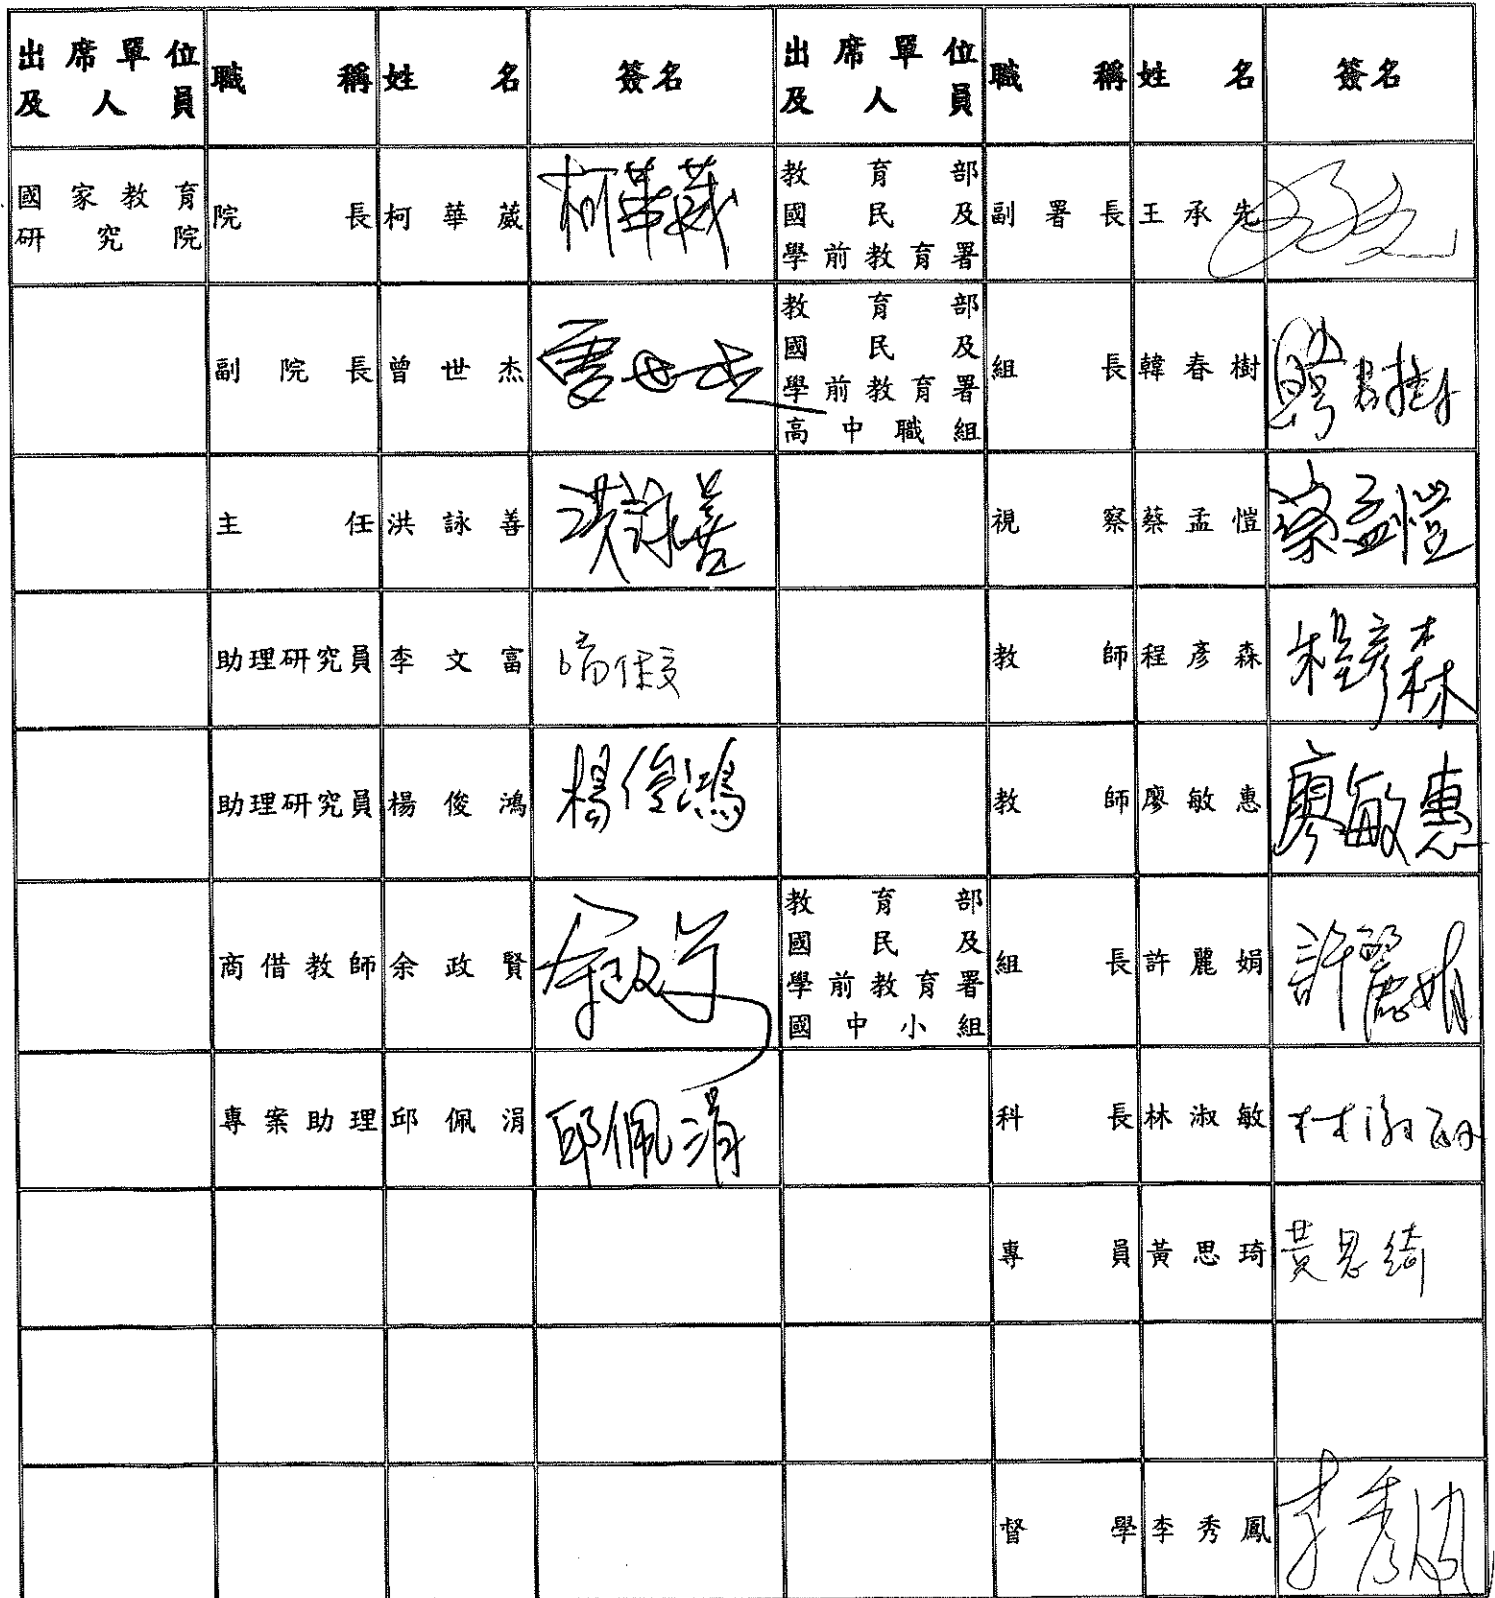 出席單位及人員 職稱 姓名 簽名 出席單位及人員 職稱 姓名 簽名
國家教育研究院 院長 柯華葳 柯華葳 教育部國民及學前教育署 副署長 王承先
副院長 曾世杰 曾世杰 教育部國民及學前教育署高中職組 組長 韓春樹 韓春樹
主任 洪詠善 洪詠善 視察 蔡孟愷 蔡孟愷
助理研究員 李文富 請假 教師 程彥森 程彥森
助理研究員 楊俊鴻 楊俊鴻 教師 廖敏惠 廖敏惠
商借教師 余政賢 教育部國民及學前教育署國中小組 組長 許麗娟 許麗娟
專案助理 邱佩涓 邱佩涓 科長 林淑敏 林淑敏
專員 黃思琦 黃思綺
督學 李秀鳳 李秀鳳